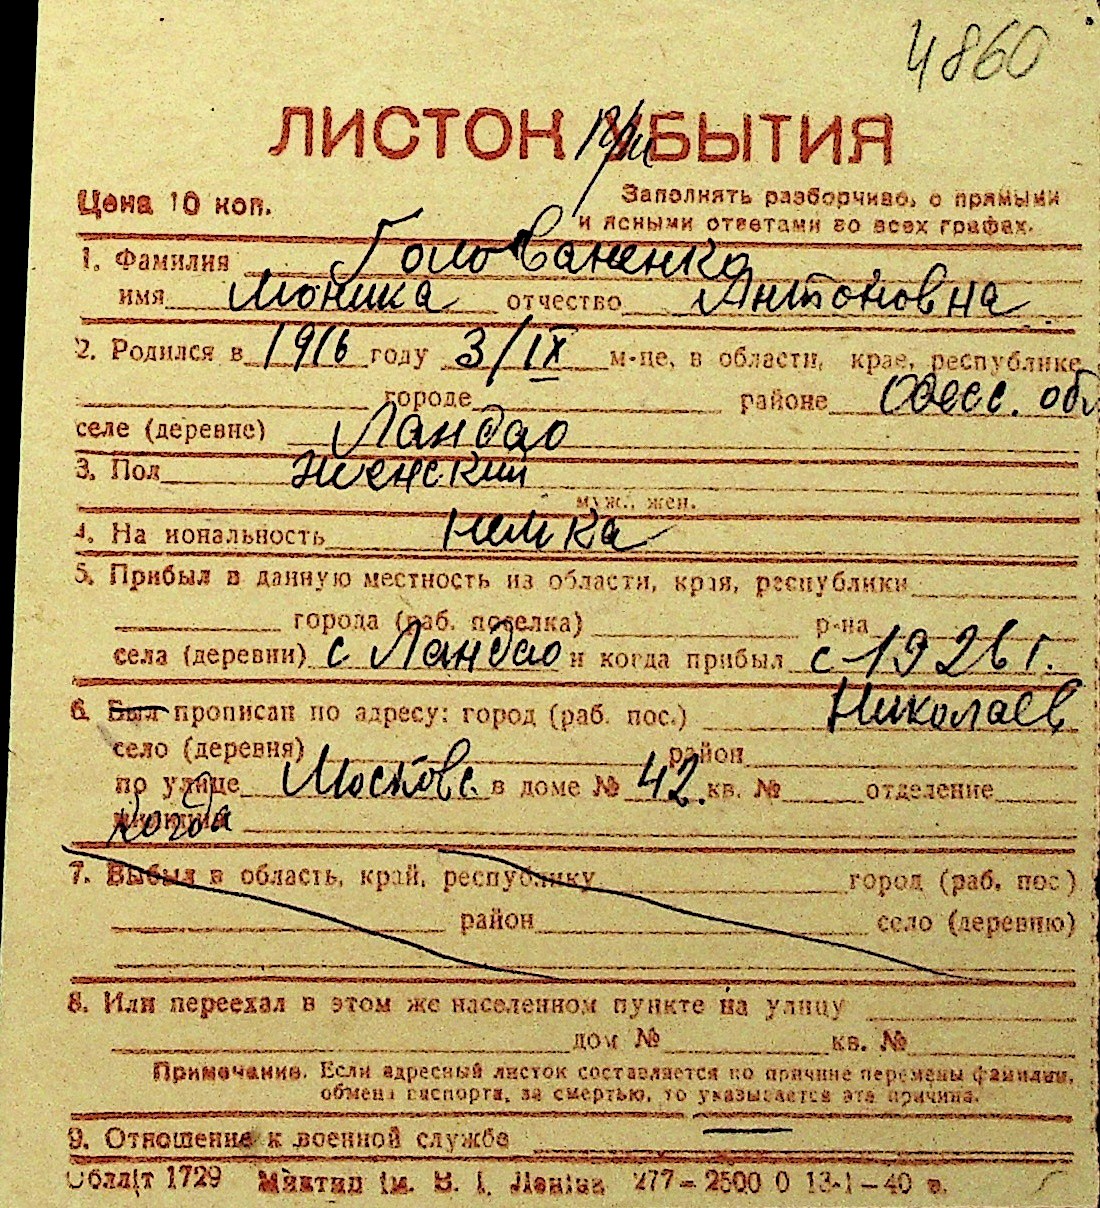 4860
ЛИСТОК УБЫТИЯ
При
Цена 10 коп.
Заполнять разборчиво, с прямыми
и ясными ответами во всех графах.
1. Фамилия Голованенко
имя Моника отчество Антоновна
2. Родился в 1916 году 3/IX м-це, в области, крае, республике
городе районе Одесс. обл
селе (деревне) Ландао
3. Пол женский
муж., жен.
4. На иональность немка
5. Прибыл в данную местность из области, края, республики
города (раб. поселка) р-на
села (деревни) с Ландао и когда прибыл с 1926 г.
6. Был прописан по адресу: город (раб. пос.) Николаев
село (деревня) район
по улице Московс. в доме № 42. кв. № отделение
когда
7. Выбыл в область, край, республику город (раб. пос)
район село (деревню)
8. Или переехал в этом же населенном пункте на улицу
дом № кв. №
Примечание. Если адресный листок составляется по причине перемены фамилии,
обмена паспорта, за смертью, то указывается эта причина.
9. Отношение к военной службе
Обллiт 1729 Мiктип iм. В. I. Ленiна 277-2500 0 13-1-40 в.